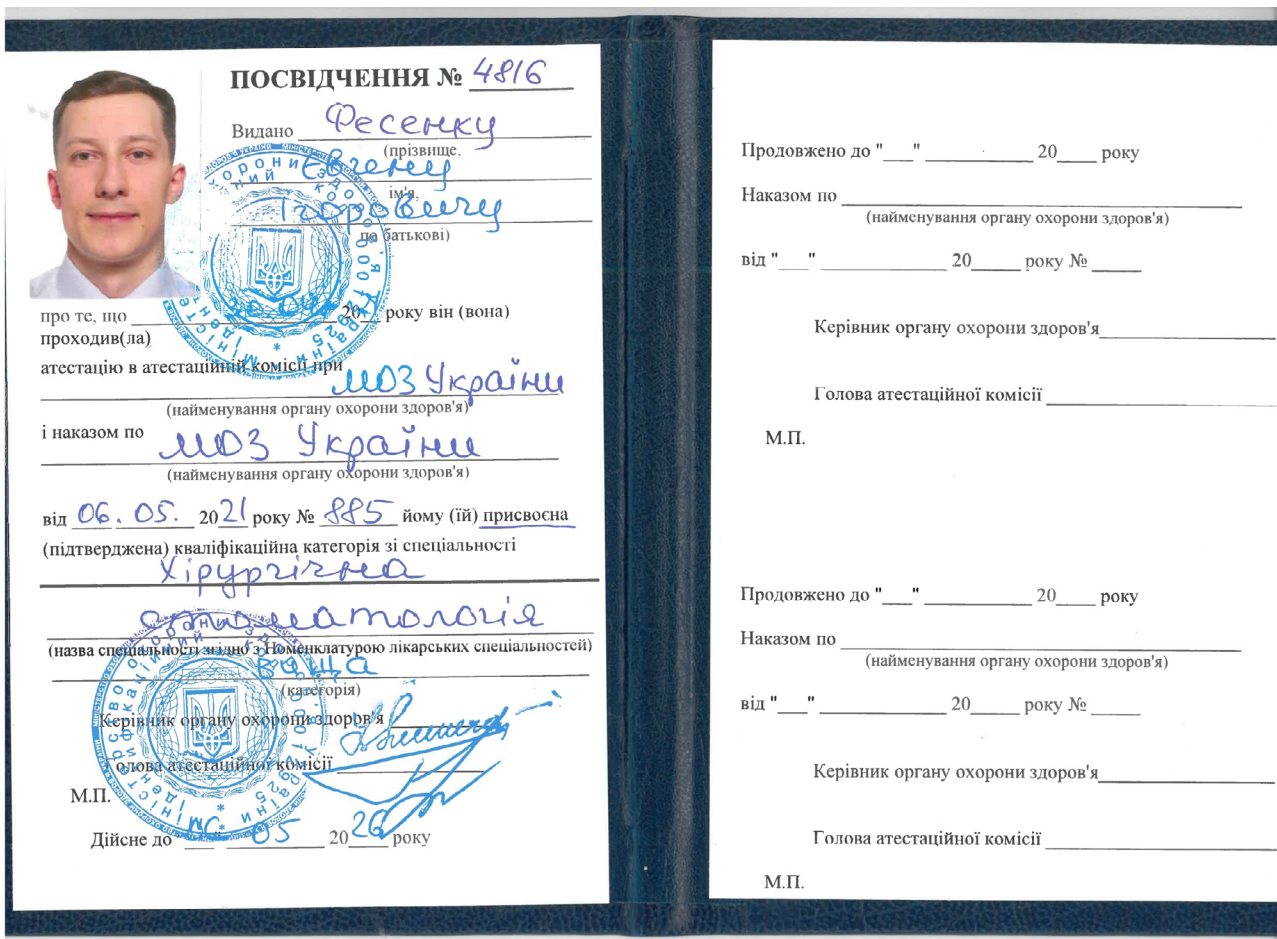 ПОСВІДЧЕННЯ № 4816
Видано Фесенку
(прізвище,
Євгену
ім'я,
Ігоровичу
по батькові)
про те, що 20.04. 20 року він (вона)
проходив(ла)
атестацію в атестаційній комісії при
МОЗ України
(найменування органу охорони здоров'я)
і наказом по МОЗ України
(найменування органу охорони здоров'я)
від 06. 05. 2021 року № 885 йому (їй) присвоєна
(підтверджена) кваліфікаційна категорія зі спеціальності
Хірургічна
стоматологія
(назва спеціальності згідно з Номенклатурою лікарських спеціальностей)
вища
(категорія)
Керівник органу охорони здоров'я
Голова атестаційної комісії
М.П.
Дійсне до 06 05 2026 року
Продовжено до "___" ________ 20____ року
Наказом по
(найменування органу охорони здоров'я)
від "___" ________ 20____ року № ____
Керівник органу охорони здоров'я
Голова атестаційної комісії
М.П.
Продовжено до "___" ________ 20____ року
Наказом по
(найменування органу охорони здоров'я)
від "___" ________ 20____ року № ____
Керівник органу охорони здоров'я
Голова атестаційної комісії
М.П.